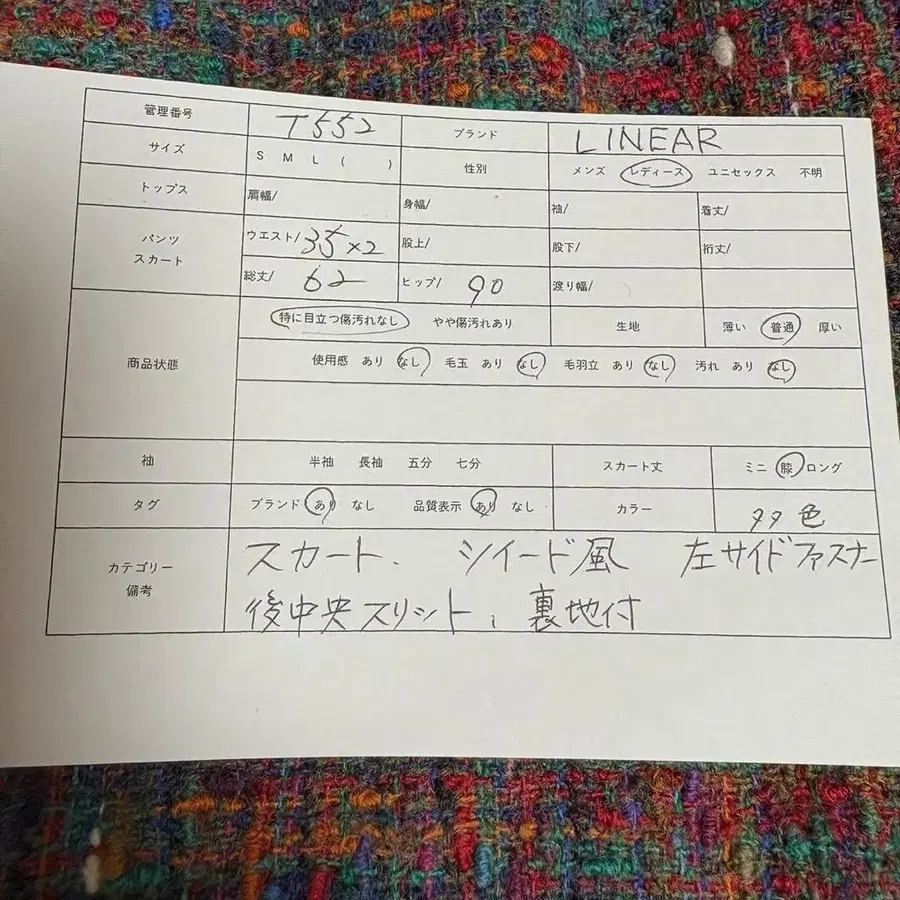 管理番号 T552 ブランド LINEAR
サイズ S M L ( ) 性別 メンズ レディース ユニセックス 不明
トップス 肩幅/ 身幅/ 袖/ 着丈/
パンツ スカート ウエスト/ 35×2 股上/ 股下/ 裄丈/
総丈/ 62 ヒップ/ 90 渡り幅/
商品状態 特に目立つ傷汚れなし やや傷汚れあり 生地 薄い 普通 厚い
使用感 あり なし 毛玉 あり なし 毛羽立 あり なし 汚れ あり なし
袖 半袖 長袖 五分 七分 スカート丈 ミニ 膝 ロング
タグ ブランド あり なし 品質表示 あり なし カラー 多色
カテゴリー 備考 スカート、 ツイード風 左サイドファスナー
後中央スリット、裏地付